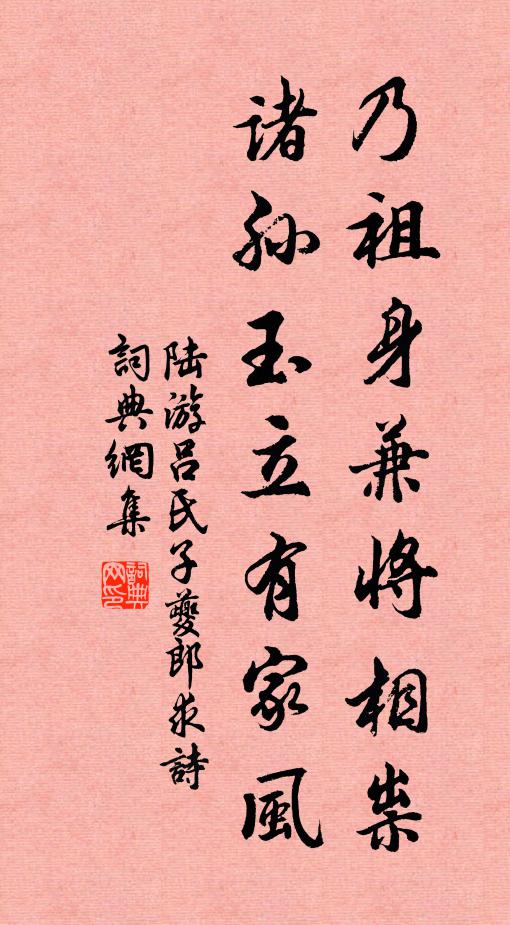 乃祖身兼將相崇
諸孫玉立有家風
陆游呂氏子夔郎求詩
詞典網集
詞典网印